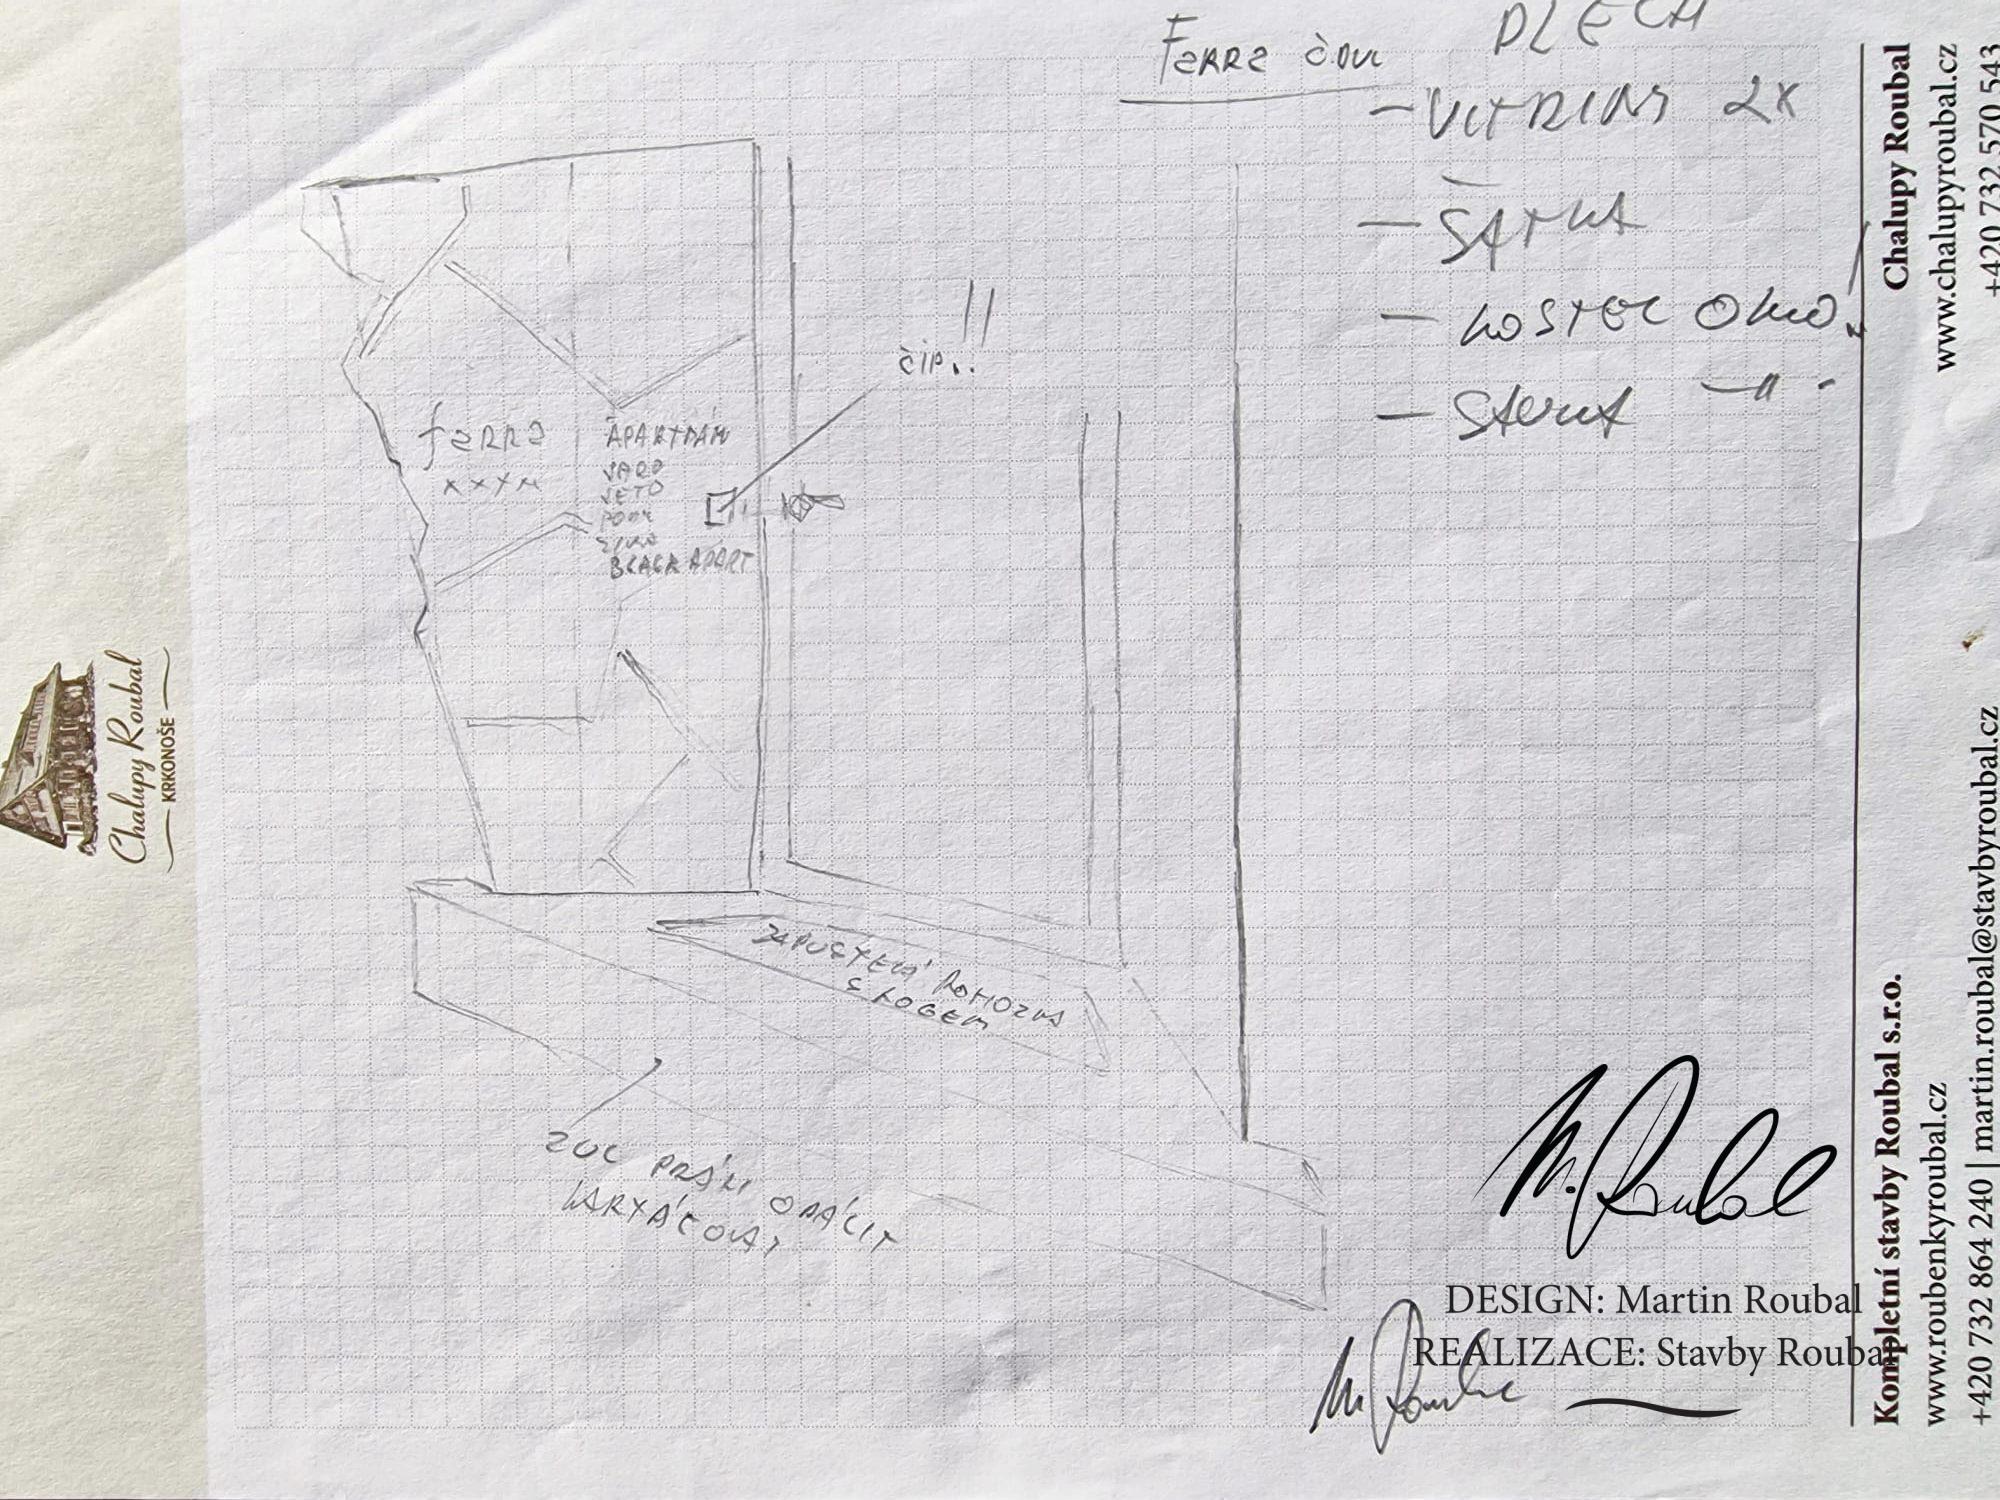 PLECH
FERRE
- VITRINY 2X
- ŠATNA
- KOSTEL OKNO!
ČIP..!!
ferre
xxxx
APARTMÁN
JARO
LÉTO
PODZ
ZIMA
BLACK APART
ZAPUŠTĚNÁ ROHOŽKA
S LOGEM
OBÁLIT
KARTÁČOVANÝ
M. Roubal
DESIGN: Martin Roubal
REALIZACE: Stavby Roubal
M. Roubal
Chalupy Roubal
KRKONOŠE
Kompletní stavby Roubal s.r.o.
www.roubenkyroubal.cz
+420 732 864 240 | martin.roubal@stavbyroubal.cz
Chalupy Roubal
www.chalupyroubal.cz
+420 732 570 543